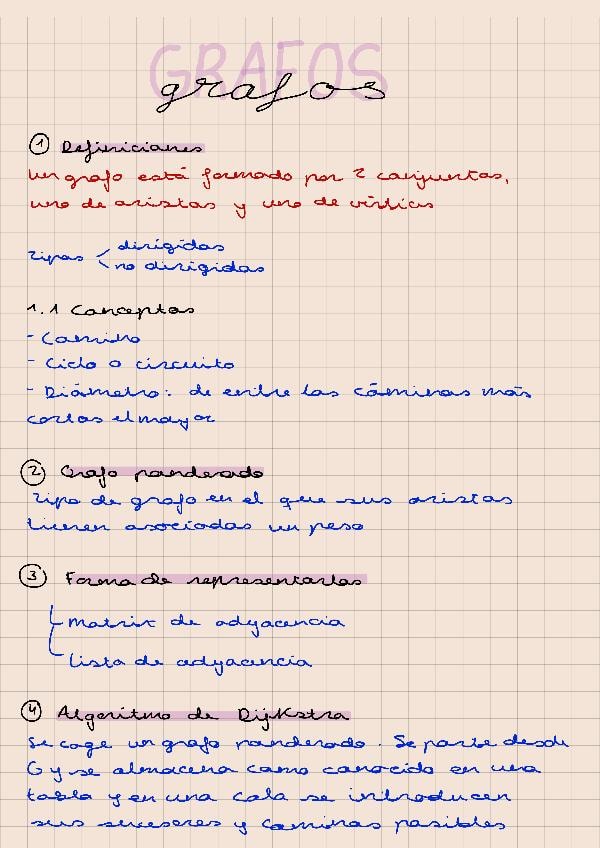 GRAFOS
grafos
1 Definiciones
Un grafo está formado por 2 conjuntos,
uno de aristas y uno de vértices
Tipos dirigidos
no dirigidos
1.1 Conceptos
- Camino
- Ciclo o circuito
- Diámetro: de entre los cáminos más
cortos el mayor
2 Grafo ponderado
Tipo de grafo en el que sus aristas
tienen asociadas un peso
3 Forma de representarlos
matrix de adyacencia
lista de adyacencia
4 Algoritmo de Dijkstra
Se coge un grafo ponderado. Se parte desde
G y se almacena como conocido en una
tabla y en una cola se introducen
sus sucesores y caminos posibles